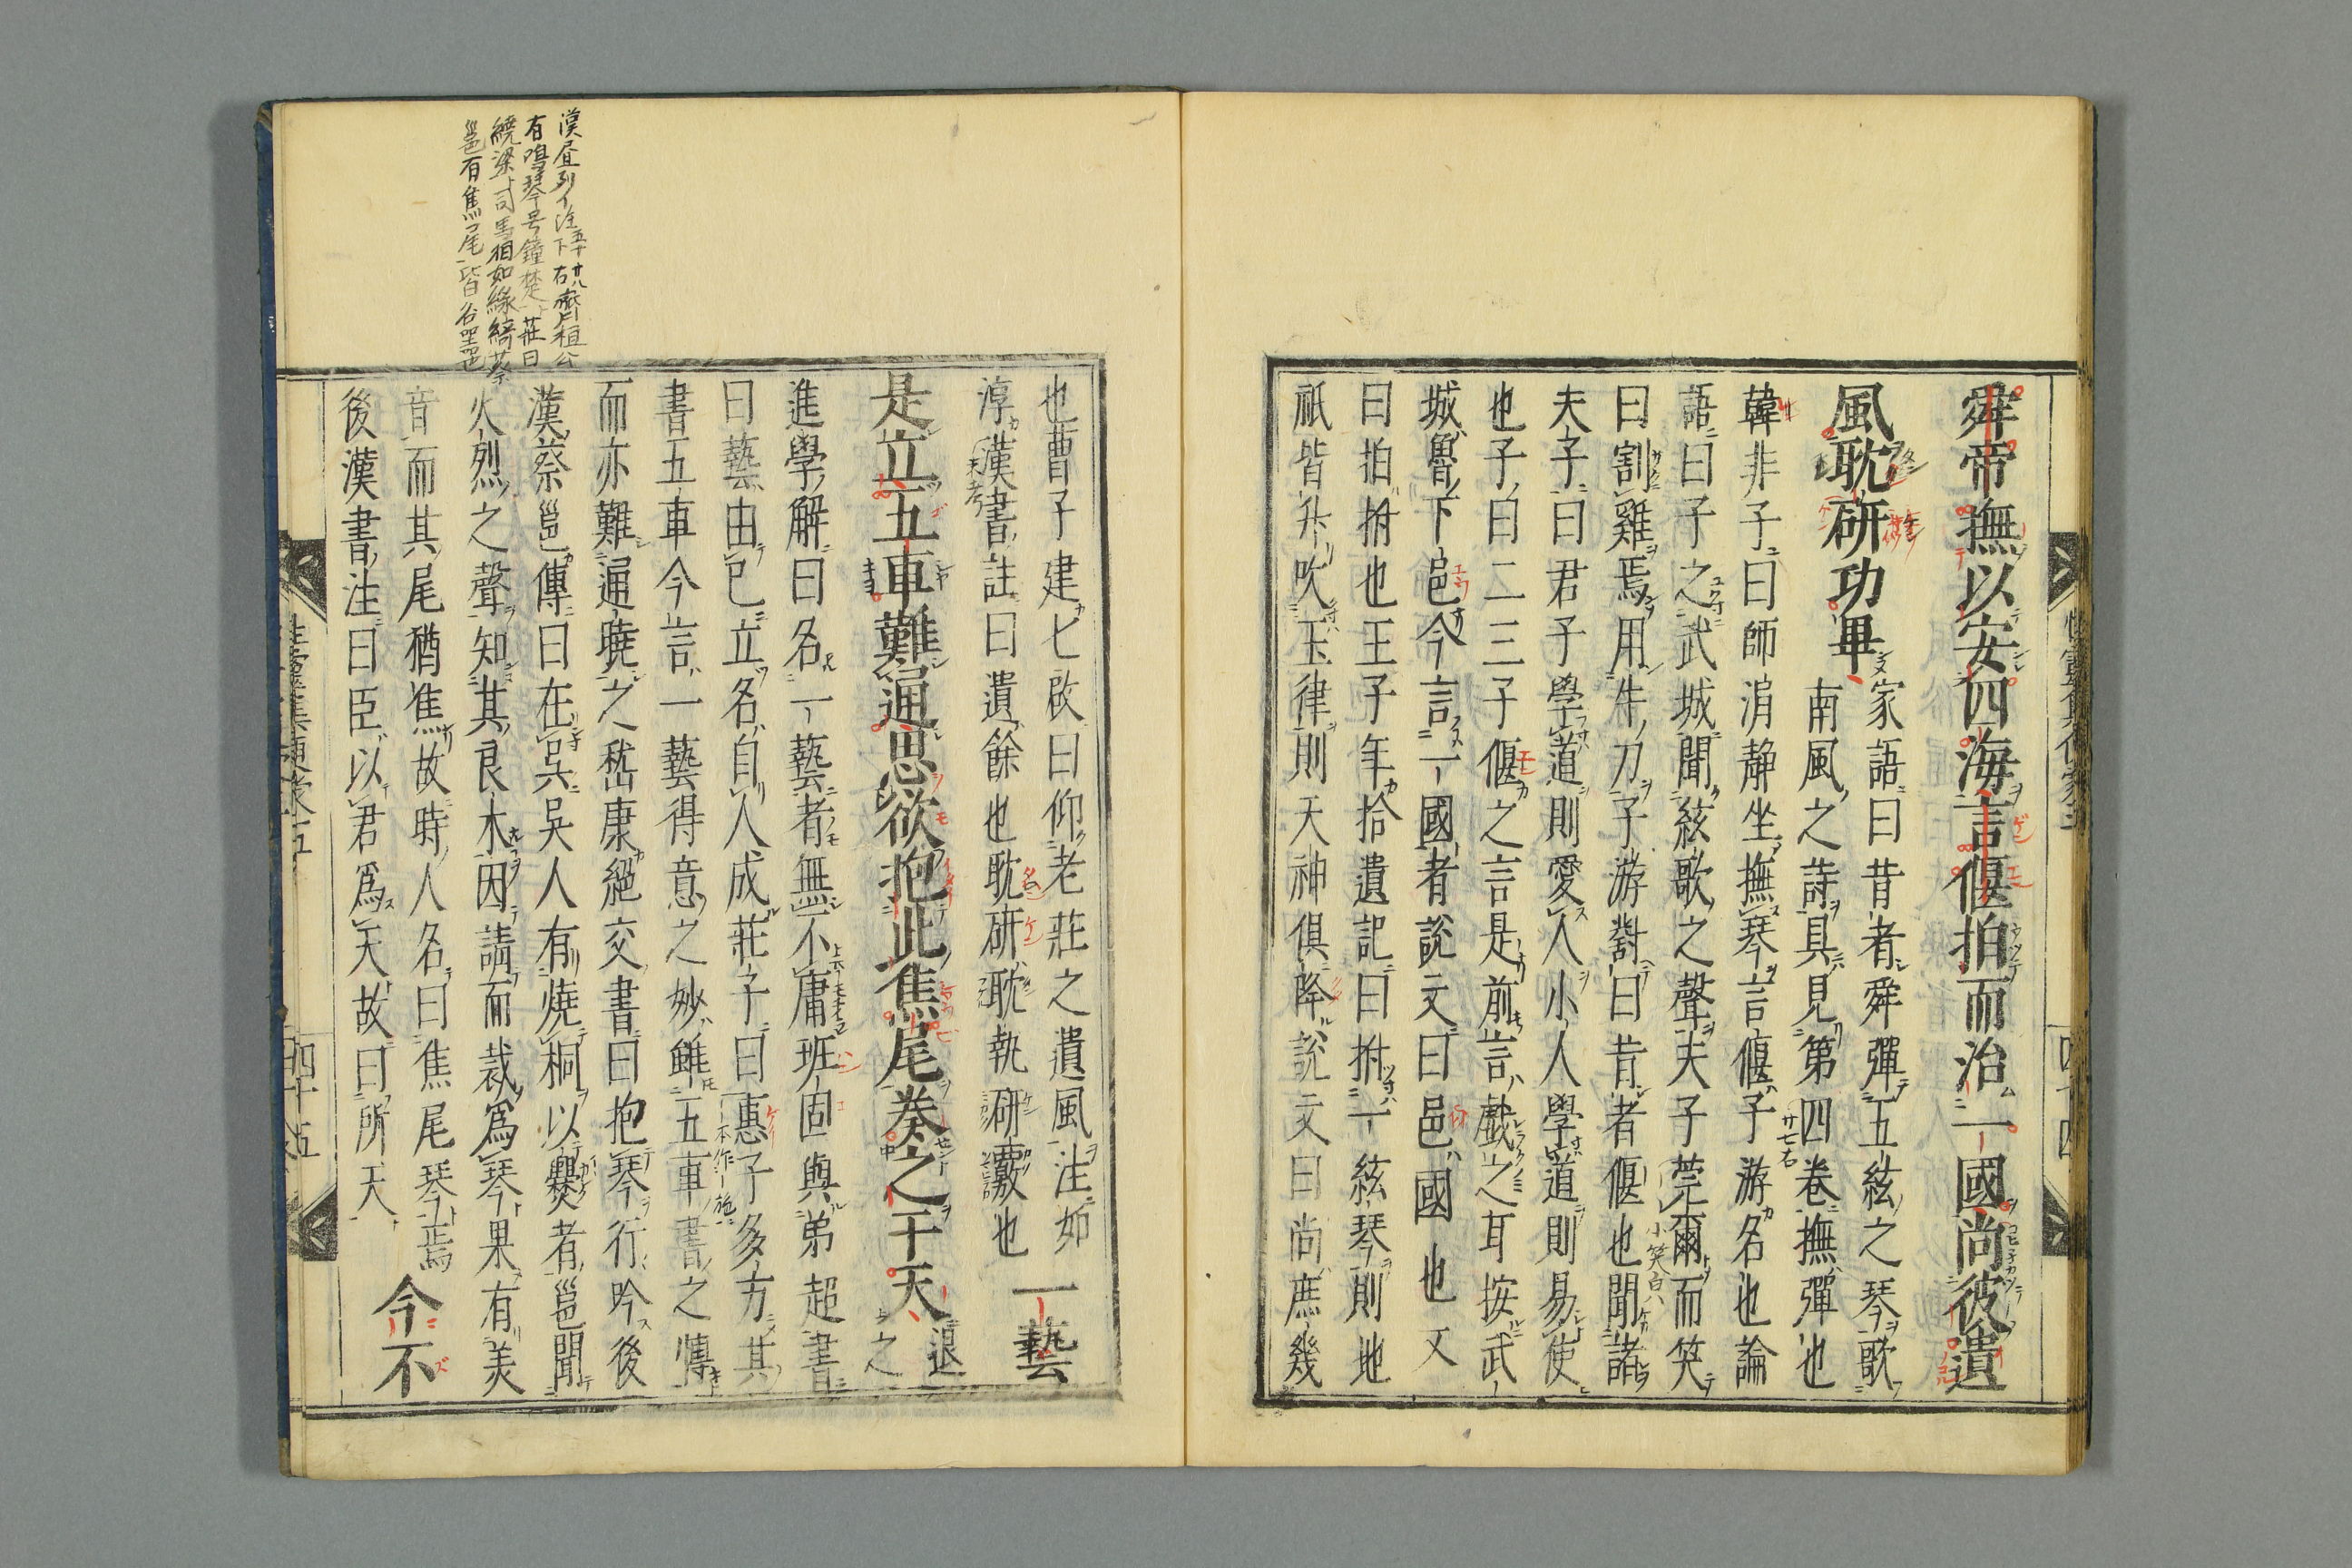 舜帝撫以安四海言偃拍而治一國尚彼遺
風耽研功畢
家語曰昔者舜彈五絃之琴歌
南風之詩具見第四卷撫彈也
韓非子曰師涓靜坐撫琴言偃子游名也論
語曰子之武城聞絃歌之聲夫子莞爾而笑
曰割雞焉用牛刀子游對曰昔者偃也聞諸
夫子曰君子學道則愛人小人學道則易使
也子曰二三子偃之言是前言戲之耳按武
城魯下邑今言一國者說文曰邑國也又
曰拍拊也王子年拾遺記曰拊一絃琴則地
祇皆升吹玉律則天神俱降說文曰尚庶幾
也曹子建七啟曰仰老莊之遺風注如
淳漢書註曰遺餘也耽研耽執研覈也
一藝
是立五車難通思欲抱此焦尾奏之干天
退
之
進學解曰名一藝者無不庸班固與弟超書
曰藝由已立名自人成莊子曰惠子多方其
書五車今言一藝得意之妙雖五車書之博
而亦難通曉之嵇康絕交書曰抱琴行吟後
漢蔡邕傳曰在吳吳人有燒桐以爨者邕聞
火烈之聲知其良木因請而裁為琴果有美
音而其尾猶焦故時人名曰焦尾琴焉
今不
後漢書注曰臣以君爲天故曰所天
四十五